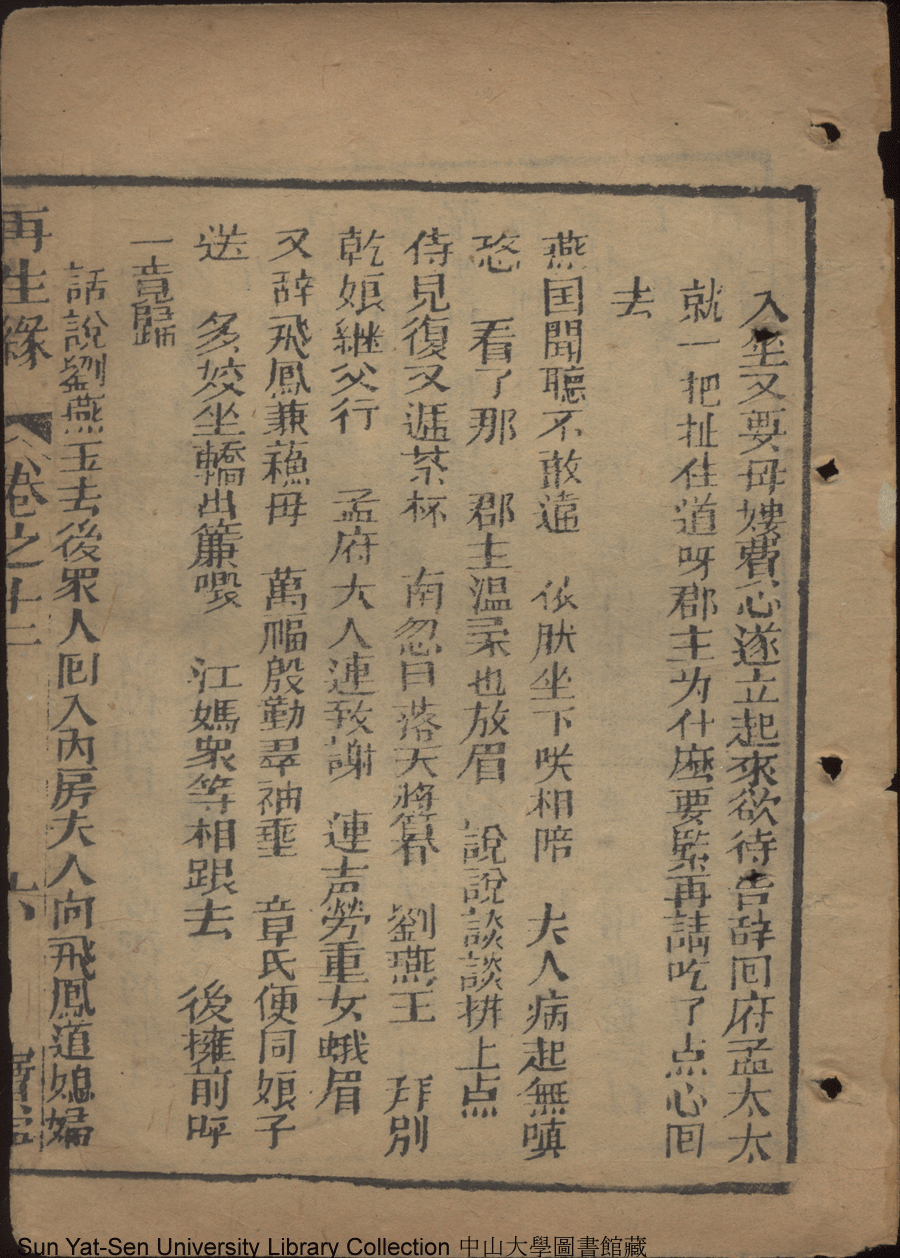 入坐又要母㜢費心遂立起來欲待告辞囬府孟太太
就一把扯住道呀郡主为什麽要緊再請吃了点心囬
去
燕国聞聽不敢違　依肰坐下咲相陪　夫人病起無嗔
恣　看了那　郡主温柔也放眉　說說談談拼上点
侍兒復又逓茶杯　南忽日落天將暮　劉燕玉　拜別
乾娘継父行　孟府夫人連致謝　連声勞重女蛾眉
又辞飛鳳兼蘓母　萬福殷勤翠袖垂　章氏便同娘子
送　多姣坐轎出簾　江媽衆等相跟去　後擁前呼
一竟歸
話說劉燕玉去後眾人囬入內房夫人向飛鳳道媳婦
再生緣　卷之十三　六
Sun Yat-Sen University Library Collection 中山大學圖書館藏